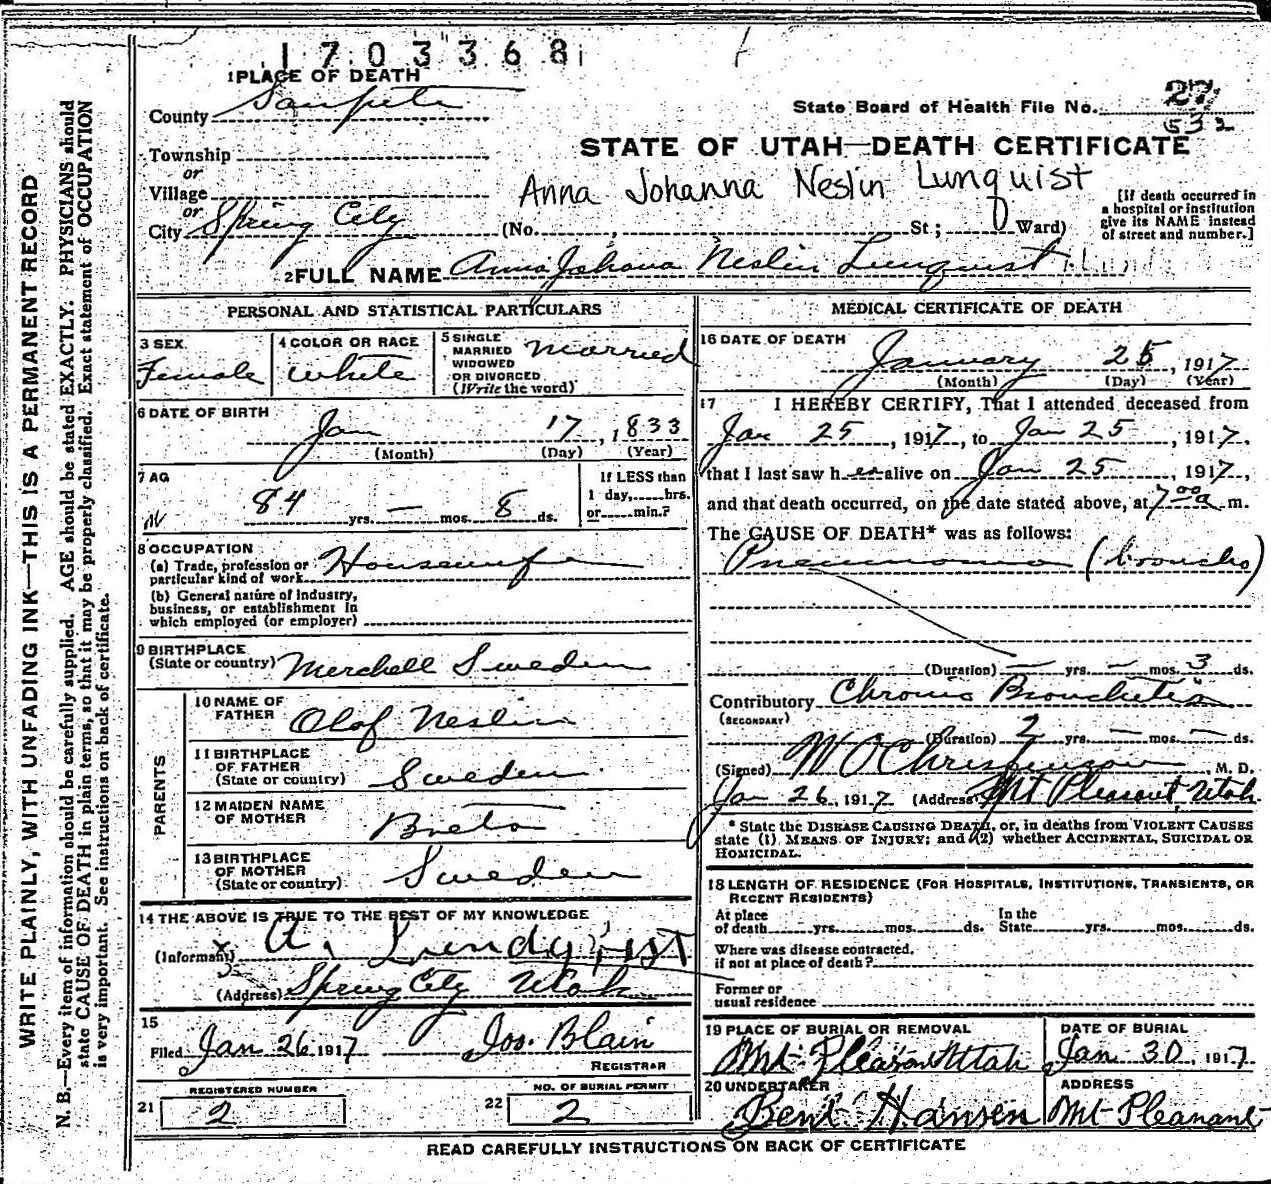 1703368
1 PLACE OF DEATH
County Sanpete
State Board of Health File No. 27
532
STATE OF UTAH—DEATH CERTIFICATE
Township
or
Village
or
City Spring City
Anna Johanna Neslin Lunquist
(No. , St; Ward)
[If death occurred in
a hospital or institution
give its NAME instead
of street and number.]
2 FULL NAME Anna Johana Neslin Lunquist
PERSONAL AND STATISTICAL PARTICULARS
3 SEX
Female
4 COLOR OR RACE
White
5 SINGLE
MARRIED
WIDOWED
OR DIVORCED
(Write the word)
Married
6 DATE OF BIRTH
Jan 17, 1833
(Month) (Day) (Year)
7 AG
84 yrs. — mos. 8 ds.
If LESS than
1 day, hrs.
or min.?
8 OCCUPATION
(a) Trade, profession or
particular kind of work Housewife
(b) General nature of industry,
business, or establishment in
which employed (or employer)
9 BIRTHPLACE
(State or country) Merchell Sweden
PARENTS
10 NAME OF
FATHER Olof Neslin
11 BIRTHPLACE
OF FATHER
(State or country) Sweden
12 MAIDEN NAME
OF MOTHER Breta
13 BIRTHPLACE
OF MOTHER
(State or country) Sweden
14 THE ABOVE IS TRUE TO THE BEST OF MY KNOWLEDGE
(Informant) A. Lundquist
(Address) Spring City Utah
15
Filed Jan 26 1917 Jos. Blain
REGISTRAR
REGISTERED NUMBER
21 2
NO. OF BURIAL PERMIT
22 2
MEDICAL CERTIFICATE OF DEATH
16 DATE OF DEATH
January 25, 1917
(Month) (Day) (Year)
17 I HEREBY CERTIFY, That I attended deceased from
Jan 25, 1917, to Jan 25, 1917,
that I last saw her alive on Jan 25, 1917,
and that death occurred, on the date stated above, at 7 00 a m.
The CAUSE OF DEATH* was as follows:
Pneumonia (broncho)
(Duration) — yrs. — mos. 3 ds.
Contributory Chronic Bronchitis
(SECONDARY)
(Duration) 2 yrs. — mos. — ds.
(Signed) W O Christensen, M. D.
Jan 26, 1917 (Address) Mt Pleasant, Utah
* State the DISEASE CAUSING DEATH, or, in deaths from VIOLENT CAUSES
state (1) MEANS OF INJURY; and (2) whether ACCIDENTAL, SUICIDAL OR
HOMICIDAL.
18 LENGTH OF RESIDENCE (FOR HOSPITALS, INSTITUTIONS, TRANSIENTS, OR
RECENT RESIDENTS)
At place
of death yrs. mos. ds.
In the
State yrs. mos. ds.
Where was disease contracted,
if not at place of death?
Former or
usual residence
19 PLACE OF BURIAL OR REMOVAL
Mt Pleasant Utah
DATE OF BURIAL
Jan 30, 1917
20 UNDERTAKER
Bent Hansen
ADDRESS
Mt Pleasant
READ CAREFULLY INSTRUCTIONS ON BACK OF CERTIFICATE
WRITE PLAINLY, WITH UNFADING INK—THIS IS A PERMANENT RECORD
N. B.—Every item of information should be carefully supplied. AGE should be stated EXACTLY. PHYSICIANS should
state CAUSE OF DEATH in plain terms, so that it may be properly classified. Exact statement of OCCUPATION
is very important. See instructions on back of certificate.